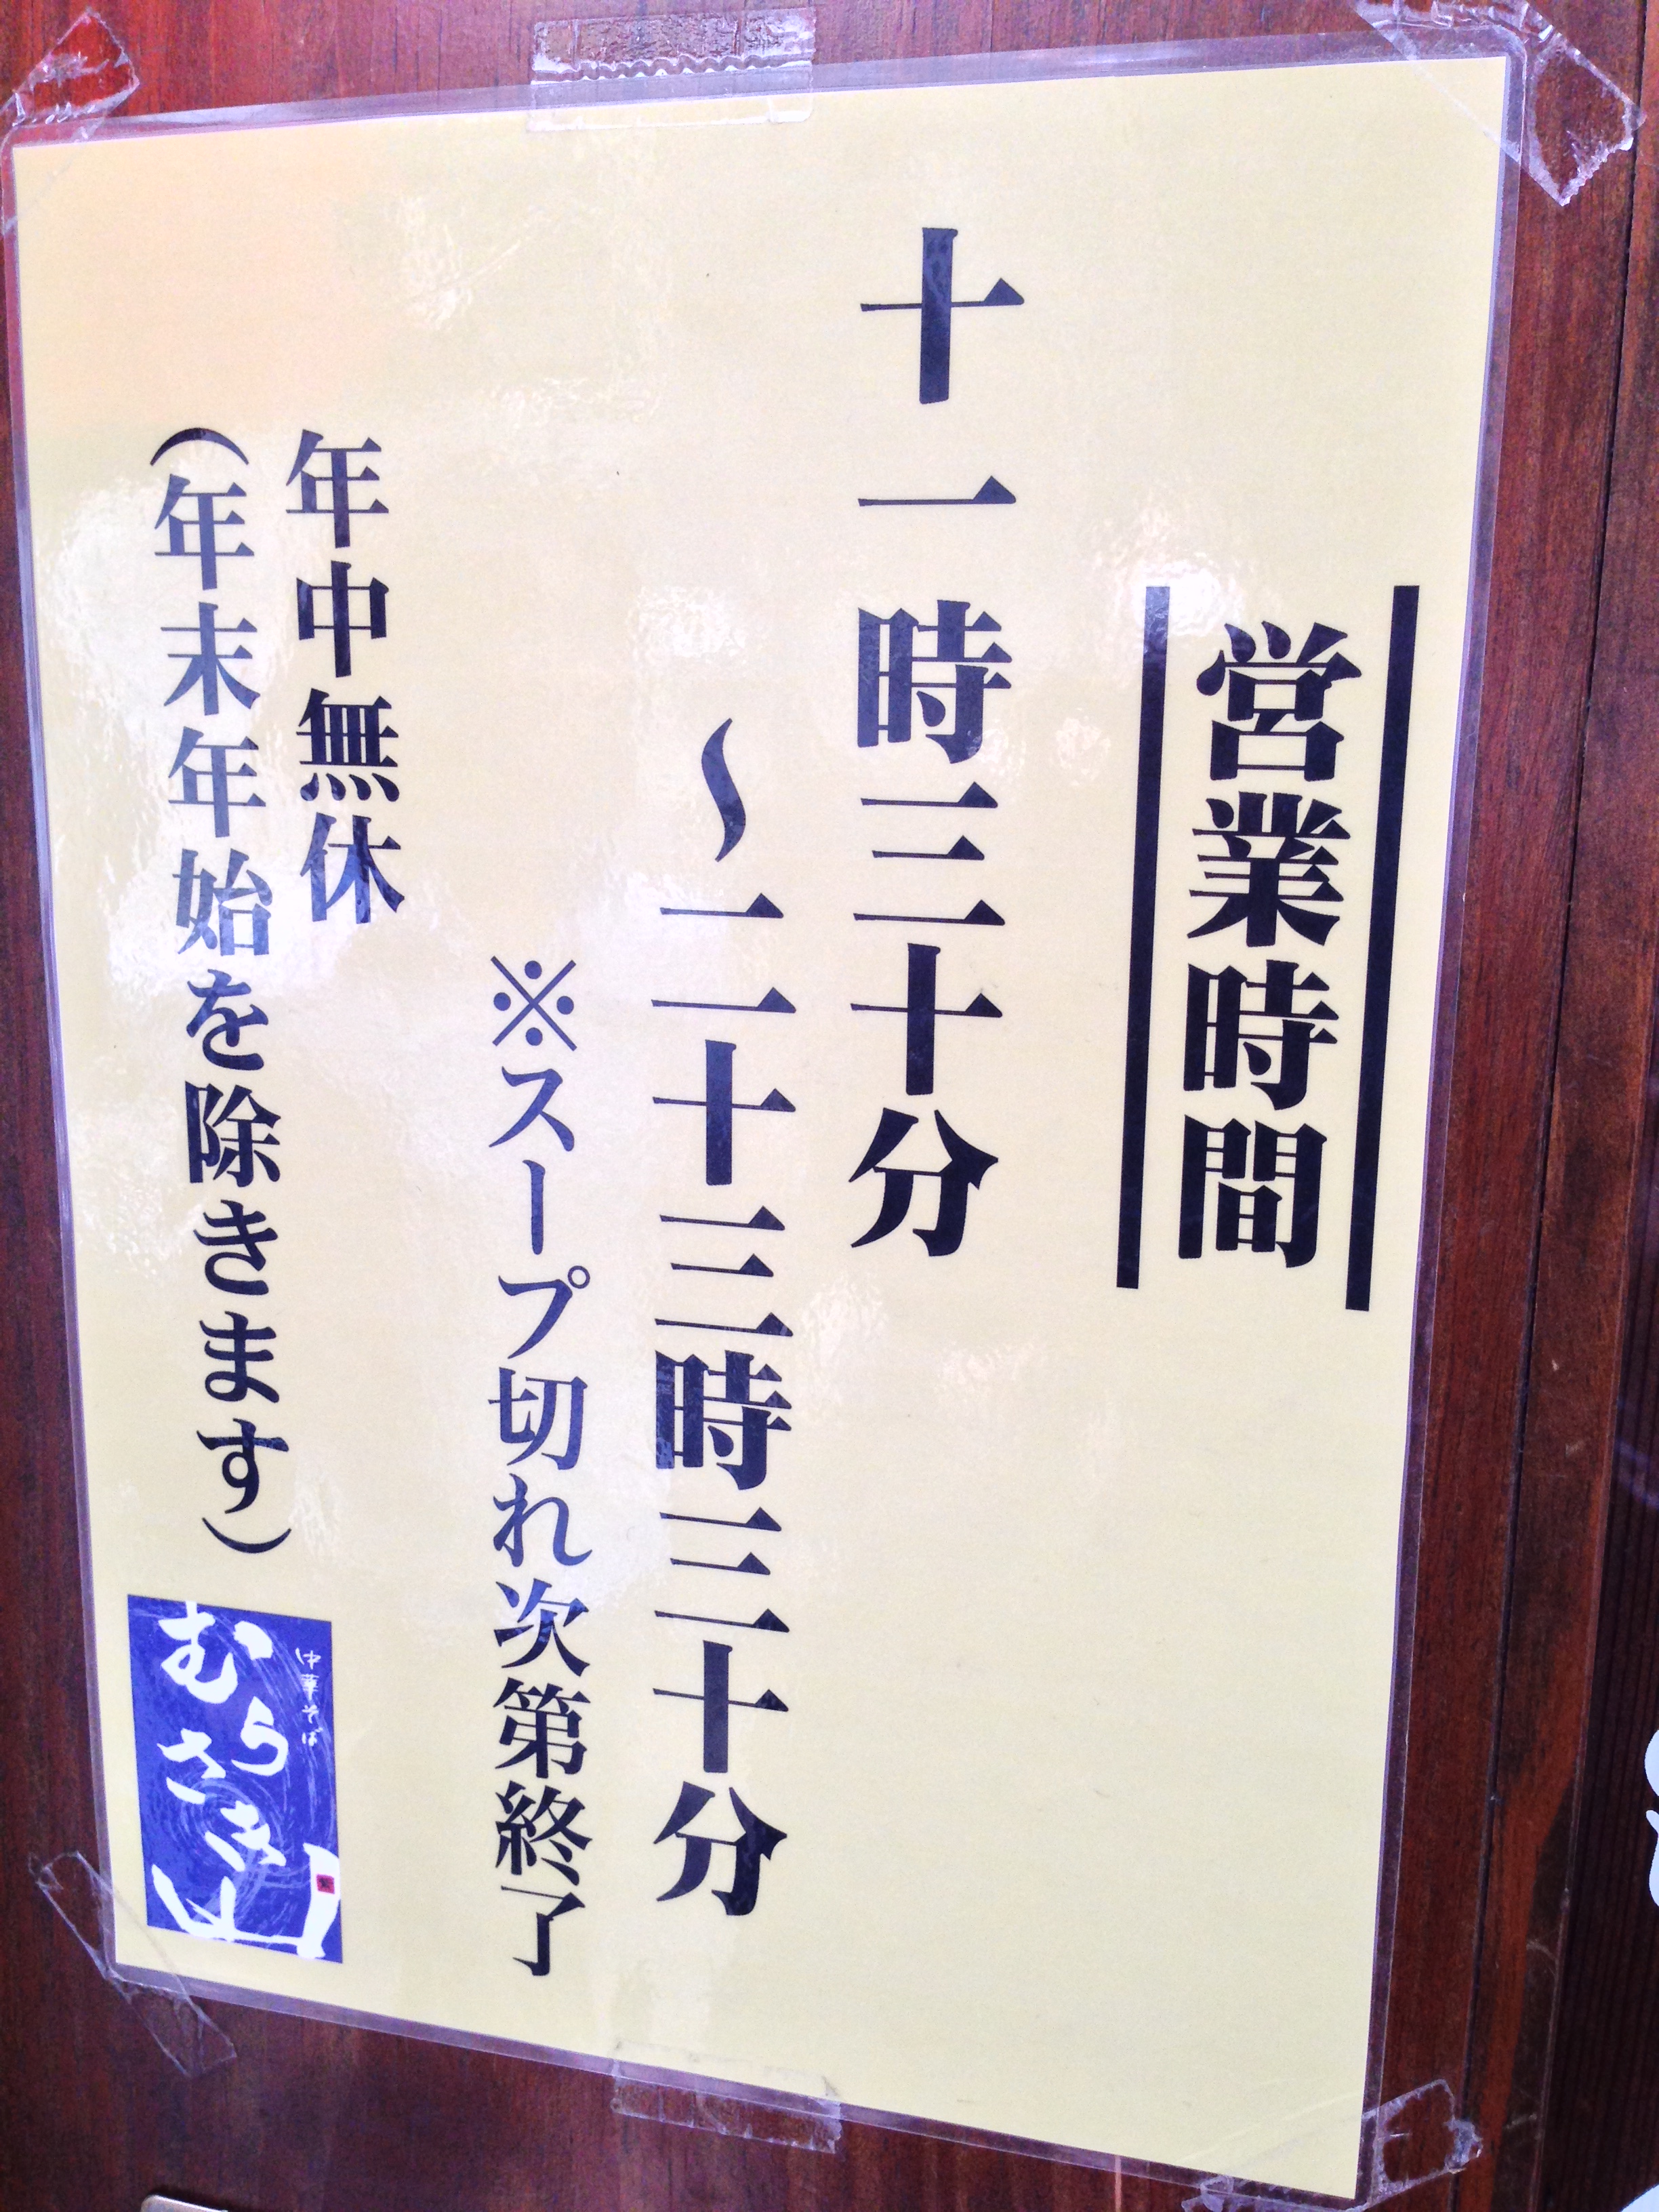 営業時間
十一時三十分
〜二十三時三十分
※スープ切れ次第終了
年中無休
(年末年始を除きます)
中華そば
むらさき山